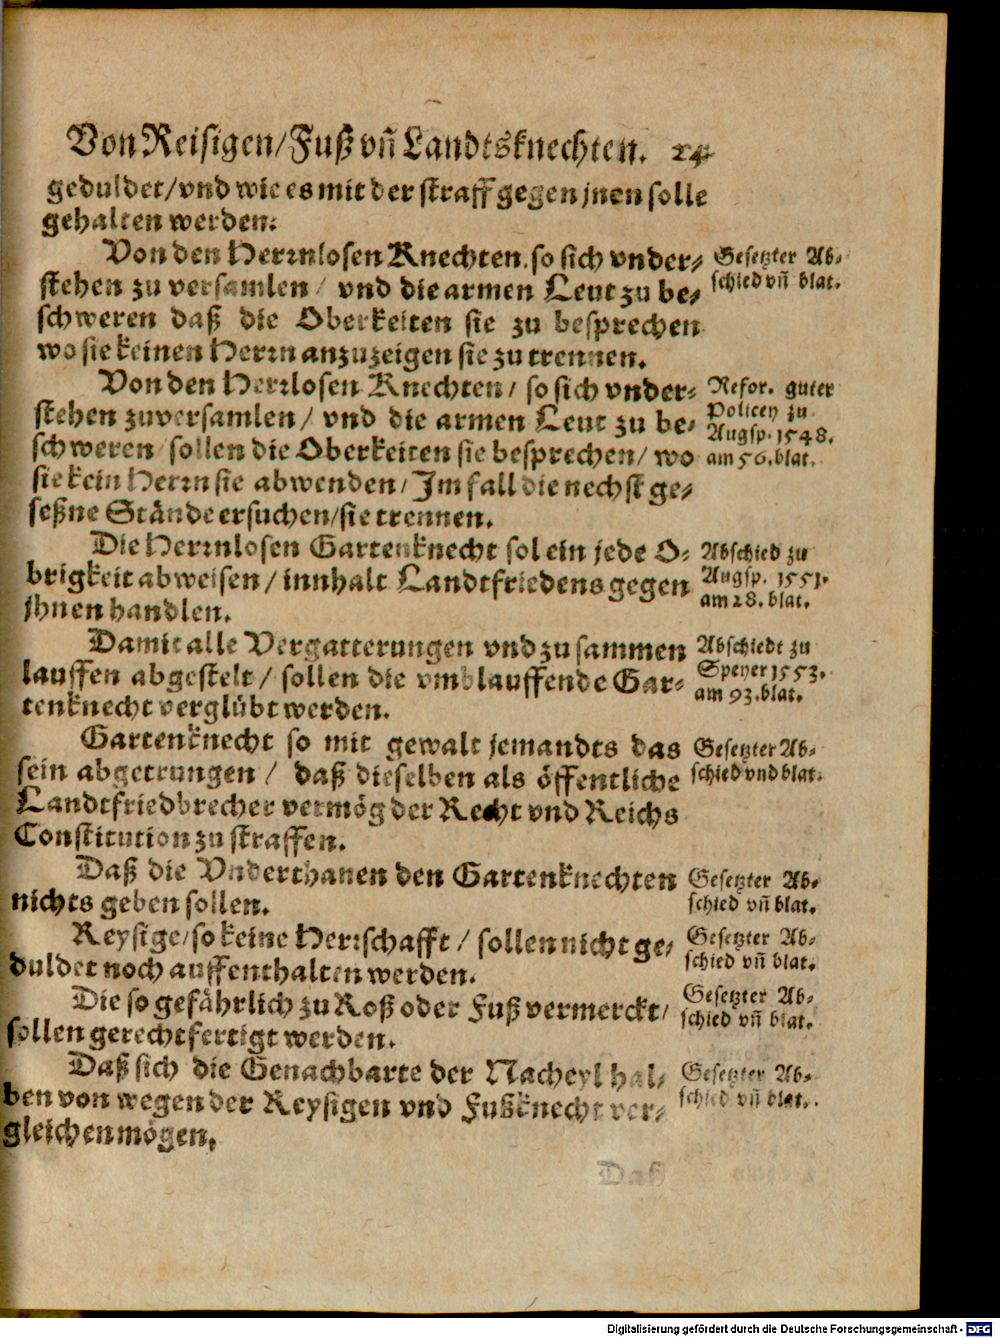 Von Reisigen/Fuß vñ Landtsknechten. 24
geduldet/vnd wie es mit der straff gegen jnen solle
gehalten werden.
Von den Herrnlosen Knechten, so sich vnder-
stehen zu versamlen / vnd die armen Leut zu be-
schweren daß die Oberkeiten sie zu besprechen
wo sie keinen Herrn anzuzeigen sie zu trennen.
Gesetzter Ab-
schied vñ blat.
Von den Herrlosen Knechten / so sich vnder-
stehen zuversamlen / vnd die armen Leut zu be-
schweren sollen die Oberkeiten sie besprechen/ wo
sie kein Herrn sie abwenden/ Im fall die nechst ge-
seßne Stände ersuchen/sie trennen.
Refor. guter
Policey zu
Augsp. 1548.
am 56. blat.
Die Herrnlosen Gartenknecht sol ein jede O-
brigkeit abweisen / innhalt Landtfriedens gegen
jhnen handlen.
Abschied zu
Augsp. 1551.
am 28. blat.
Damit alle Vergatterungen vnd zusammen
lauffen abgestelt / sollen die vmblauffende Gar-
tenknecht verglübt werden.
Abschiedt zu
Speyer 1553.
am 93. blat.
Gartenknecht so mit gewalt jemandts das
sein abgetrungen / daß dieselben als öffentliche
Landtfriedbrecher vermög der Recht vnd Reichs
Constitution zu straffen.
Gesetzter Ab-
schied vnd blat.
Daß die Vnderthanen den Gartenknechten
nichts geben sollen.
Gesetzter Ab-
schied vñ blat.
Reysige/so keine Herrschafft / sollen nicht ge-
duldet noch auffenthalten werden.
Gesetzter Ab-
schied vñ blat.
Die so gefährlich zu Roß oder Fuß vermerckt/
sollen gerechtfertigt werden.
Gesetzter Ab-
schied vñ blat.
Daß sich die Genachbarte der Nacheyl hal-
ben von wegen der Reysigen vnd Fußknecht ver-
gleichen mögen.
Gesetzter Ab-
schied vñ blat.
Daß
Digitalisierung gefördert durch die Deutsche Forschungsgemeinschaft - DFG